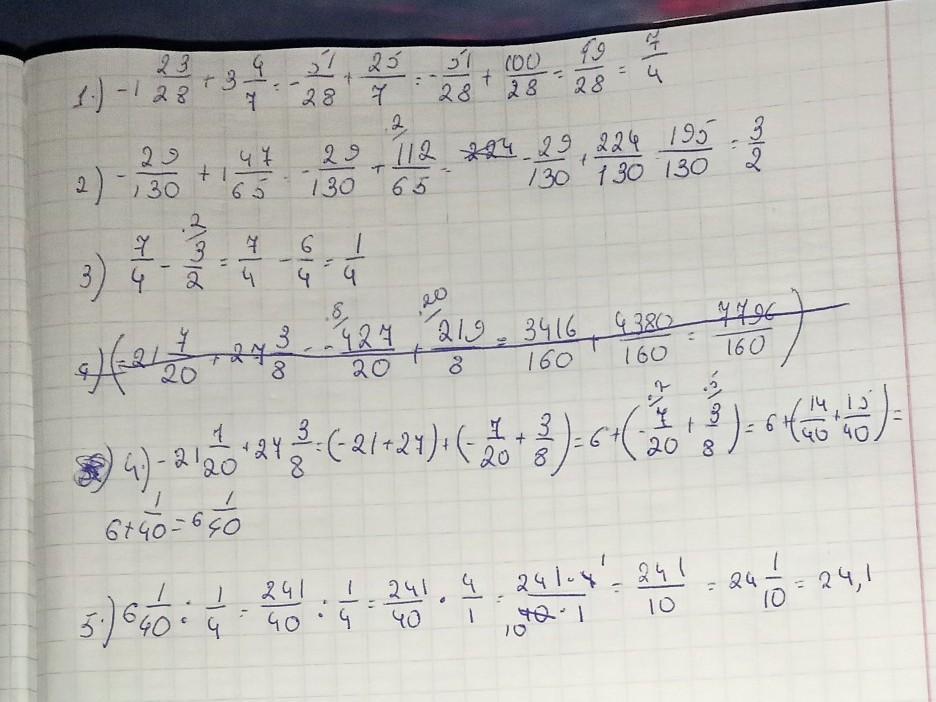 1.) -1 23/28 + 3 4/7 = - 51/28 + 25/7 = - 51/28 + 100/28 = 49/28 = 7/4
2) - 29/130 + 1 47/65 - 29/130 + 112/65 ·2 - 224 - 29/130 + 224/130 195/130 = 3/2
3) 7/4 - 3/2 ·2 = 7/4 - 6/4 = 1/4
4) (-21 7/20 + 27 3/8 - - 427/20 ·8 + 219/8 ·20 = 3416/160 + 4380/160 = 7796/160 )
) 4.) -21 7/20 + 27 3/8 = (-21+27) + (- 7/20 + 3/8) = 6 + (- 7/20 ·2 + 3/8 ·5) = 6 + (14/40 + 15/40) =
6 + 1/40 = 6 1/40
5.) 6 1/40 : 1/4 = 241/40 : 1/4 = 241/40 · 4/1 = 241 · 4 1/40 10 · 1 = 241/10 = 24 1/10 = 24,1